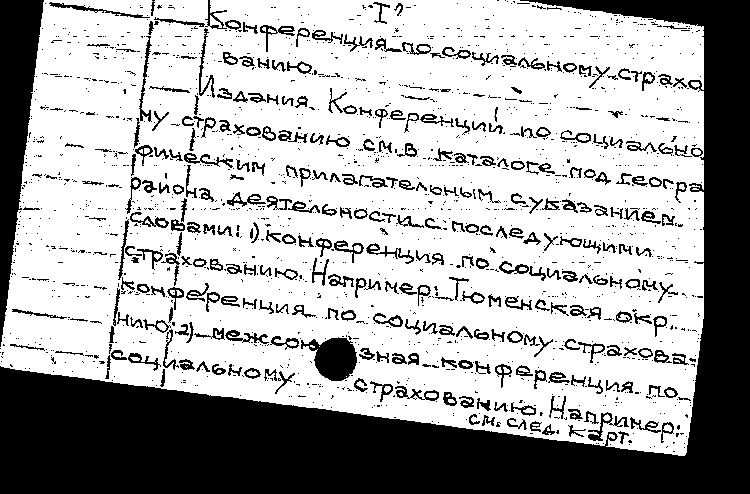 I?
Конференция по социальному страхо
ванию.
Издания Конференций по социально
му страхованию см. в каталоге под геогра
фическим прилагательным с указанием
района деятельности с последующими
словами: 1) конференция по социальному
страхованию. Например: Тюменская окр.
конференция по социальному страхова-
нию; 2) межсоюзная конференция по
социальному страхованию. Например:
см. след. карт.